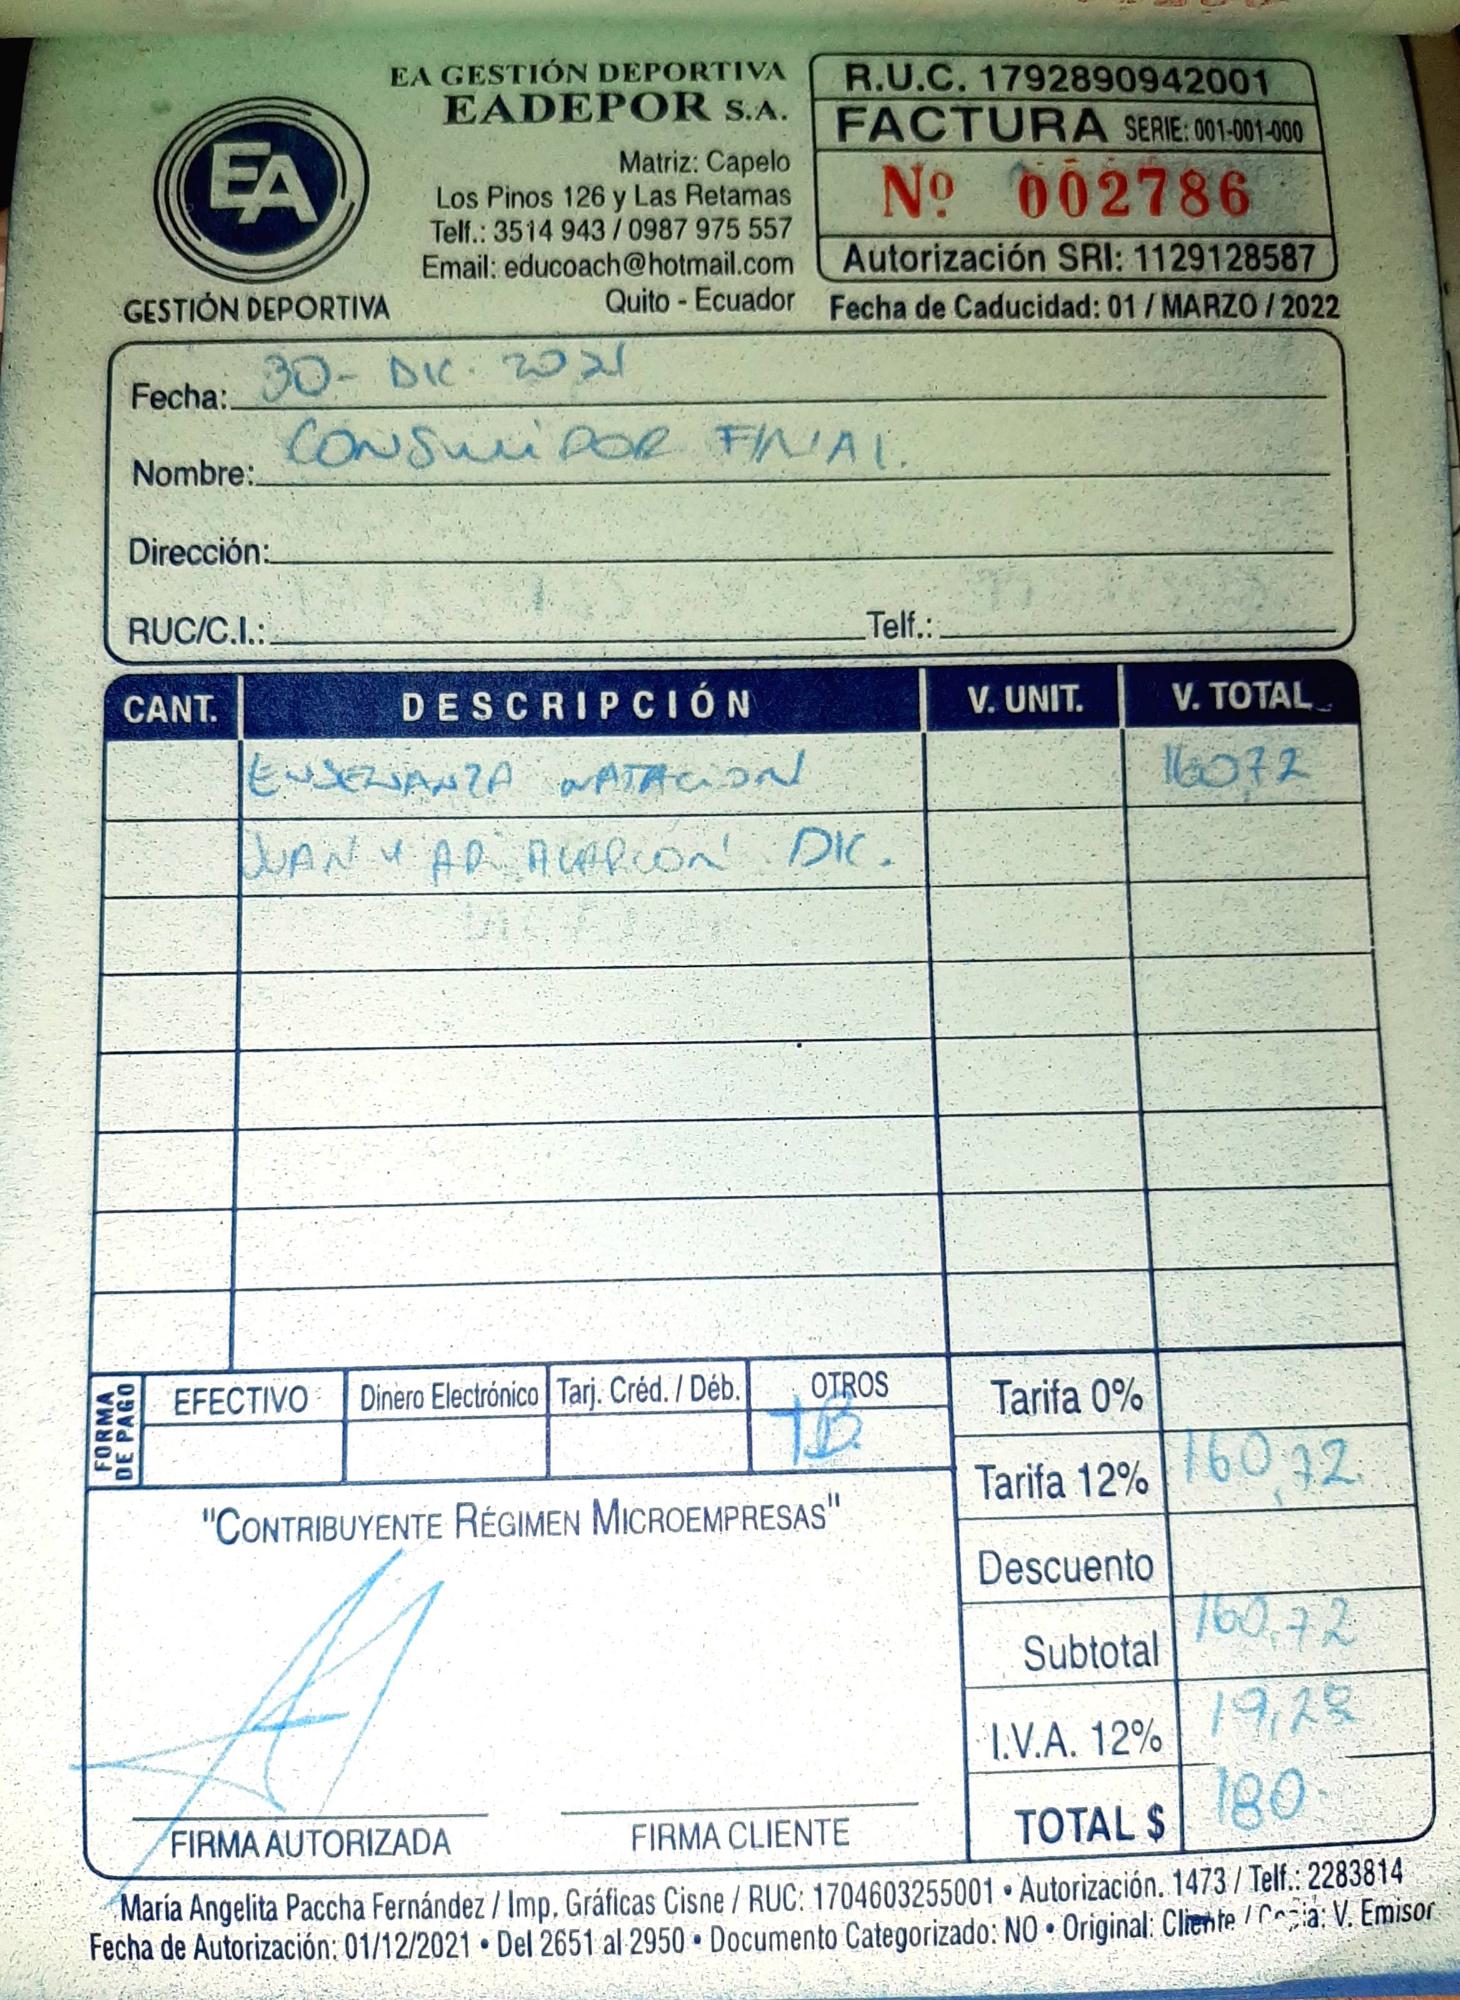 EA GESTIÓN DEPORTIVA
EADEPOR S.A.
Matriz: Capelo
Los Pinos 126 y Las Retamas
Telf.: 3514 943 / 0987 975 557
Email: educoach@hotmail.com
Quito - Ecuador
EA
GESTIÓN DEPORTIVA
R.U.C. 1792890942001
FACTURA SERIE: 001-001-000
Nº 002786
Autorización SRI: 1129128587
Fecha de Caducidad: 01 / MARZO / 2022
Fecha: 30- DIC. 2021
Nombre: CONSUMIDOR FINAL.
Dirección:
RUC/C.I.: Telf.:
CANT. DESCRIPCIÓN V. UNIT. V. TOTAL
ENSENANZA NATACION 160,72
JUAN Y ALARCON DIC.
FORMA DE PAGO
EFECTIVO Dinero Electrónico Tarj. Créd. / Déb. OTROS
TB.
Tarifa 0%
Tarifa 12% 160,72
Descuento
Subtotal 160,72
I.V.A. 12% 19,28
TOTAL $ 180
"CONTRIBUYENTE RÉGIMEN MICROEMPRESAS"
FIRMA AUTORIZADA FIRMA CLIENTE
María Angelita Paccha Fernández / Imp. Gráficas Cisne / RUC: 1704603255001 • Autorización. 1473 / Telf.: 2283814
Fecha de Autorización: 01/12/2021 • Del 2651 al 2950 • Documento Categorizado: NO • Original: Cliente / Copia: V. Emisor